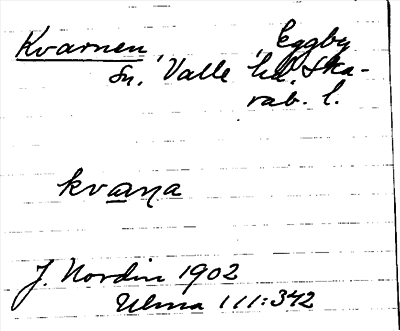 Kvarnen, Eggby
sn. Valle hd. Ska-
rab. l.
kvaṇa
J. Nordin 1902
Ulma 111:342